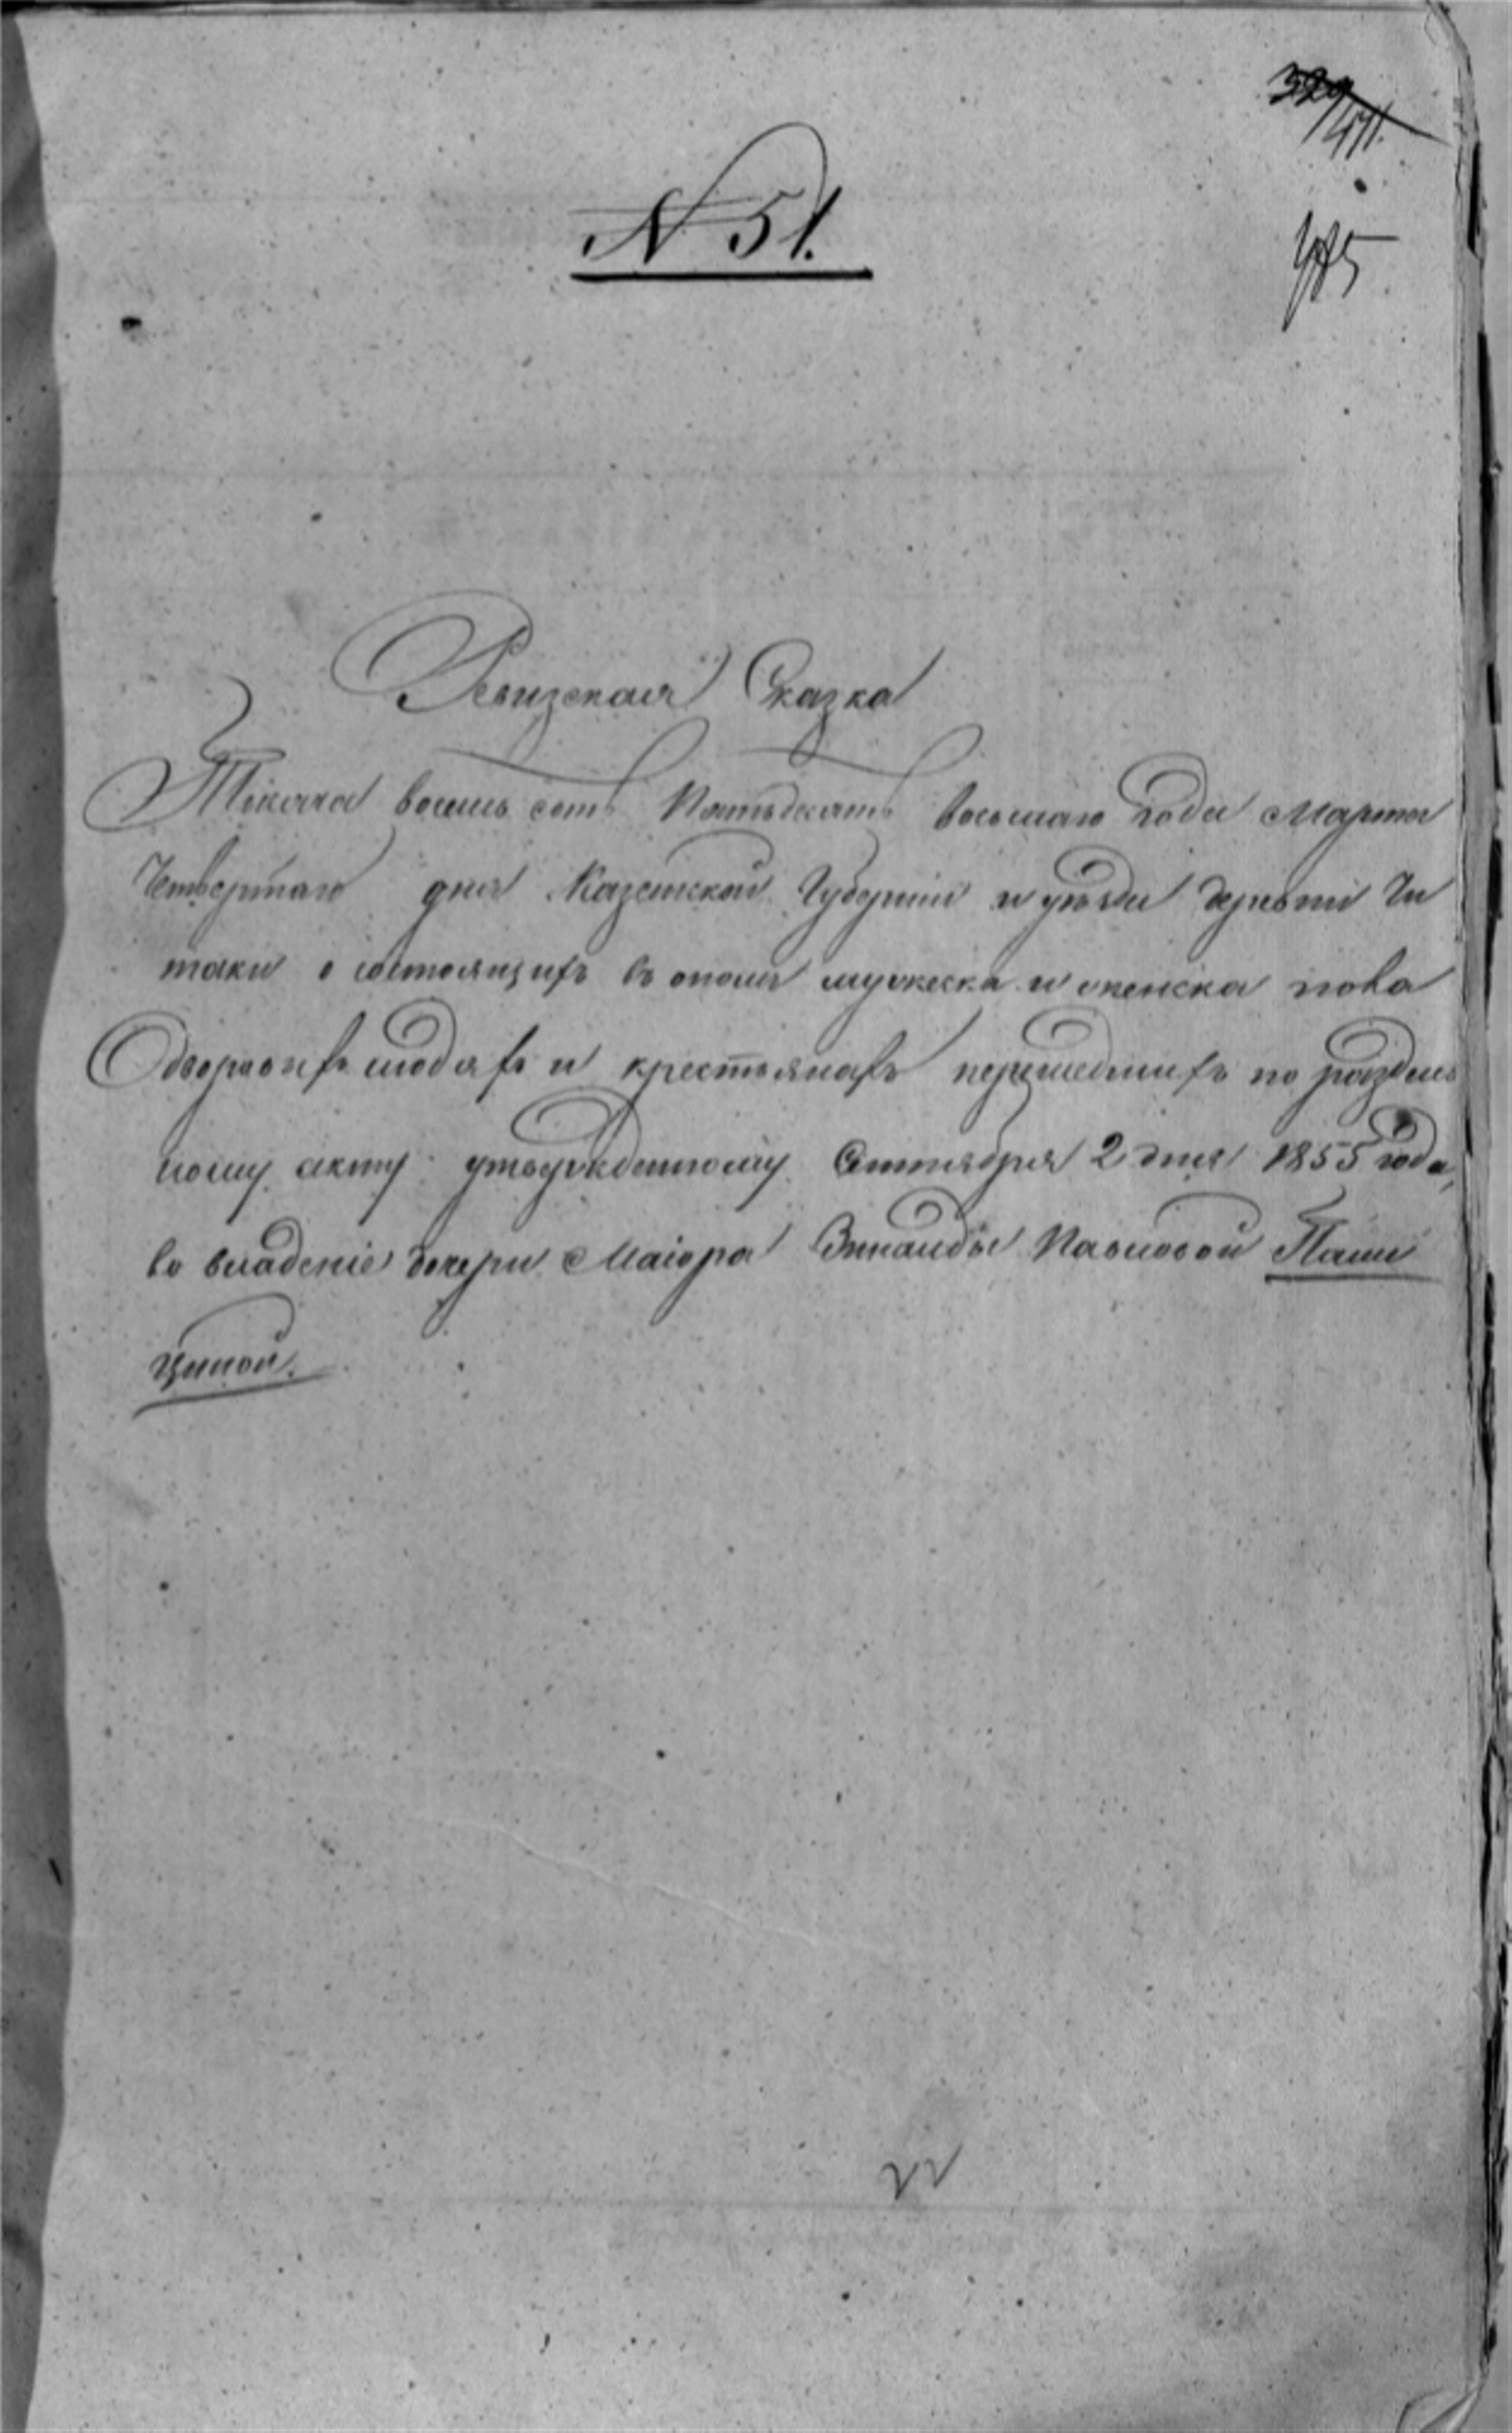 N 51.
Ревизская Сказка
Тысяча восемь сотъ Пятьдесятъ восьмаго года Марта
Четвертаго дня Казанской Губерніи и уѣзда деревни Чи
таки о состоящихъ въ оной мужеска и женска пола
Дворовыхъ людяхъ и крестьянахъ перешедшихъ по раздель
ному акту утвержденному Сентября 2 дня 1855 года,
во владеніе дочери Маіора Зинаиды Павловой Пали
циной.